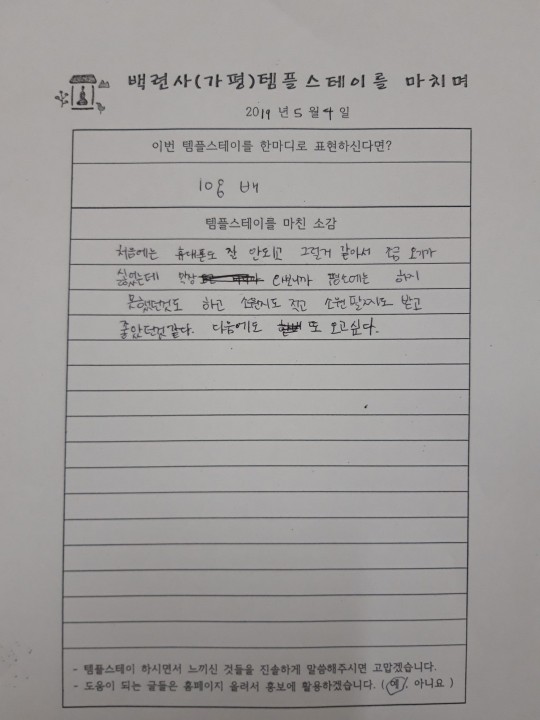 백련사(가평)템플스테이를 마치며
2019 년 5 월 4 일
이번 템플스테이를 한마디로 표현하신다면?
108 배
템플스테이를 마친 소감
처음에는 휴대폰도 잘 안되고 그럴거 같아서 조금 오기가
싫었는데 막상 와보니까 평소에는 하지
못했던것도 하고 소원지도 적고 소원팔찌도 받고
좋았던것같다. 다음에도 또 오고싶다.
- 템플스테이 하시면서 느끼신 것들을 진솔하게 말씀해주시면 고맙겠습니다.
- 도움이 되는 글들은 홈페이지 올려서 홍보에 활용하겠습니다. ( 예 , 아니요 )